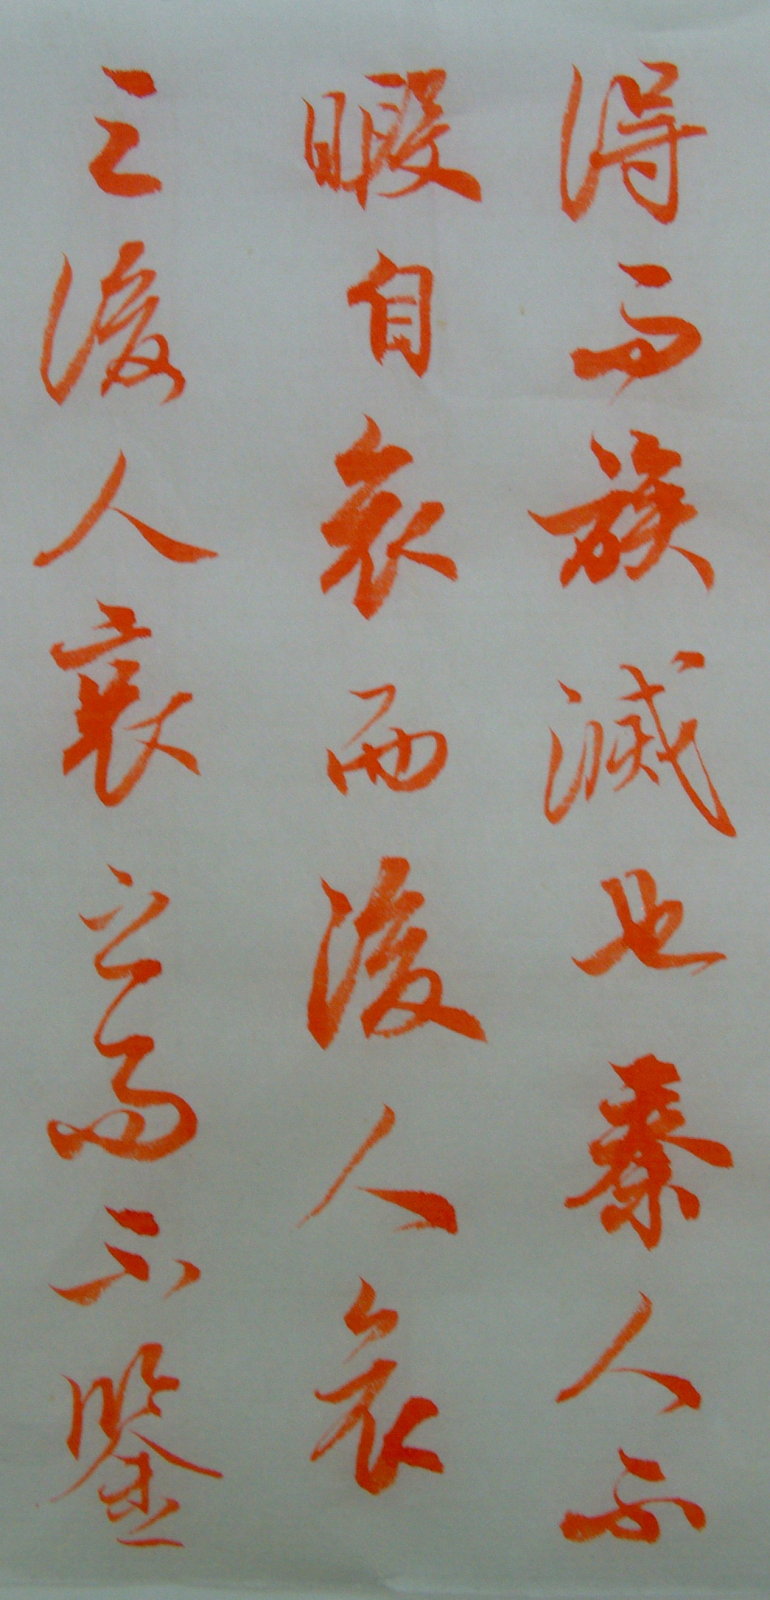 得而族滅也秦人不
暇自哀而後人哀
之後人哀之而不鑒